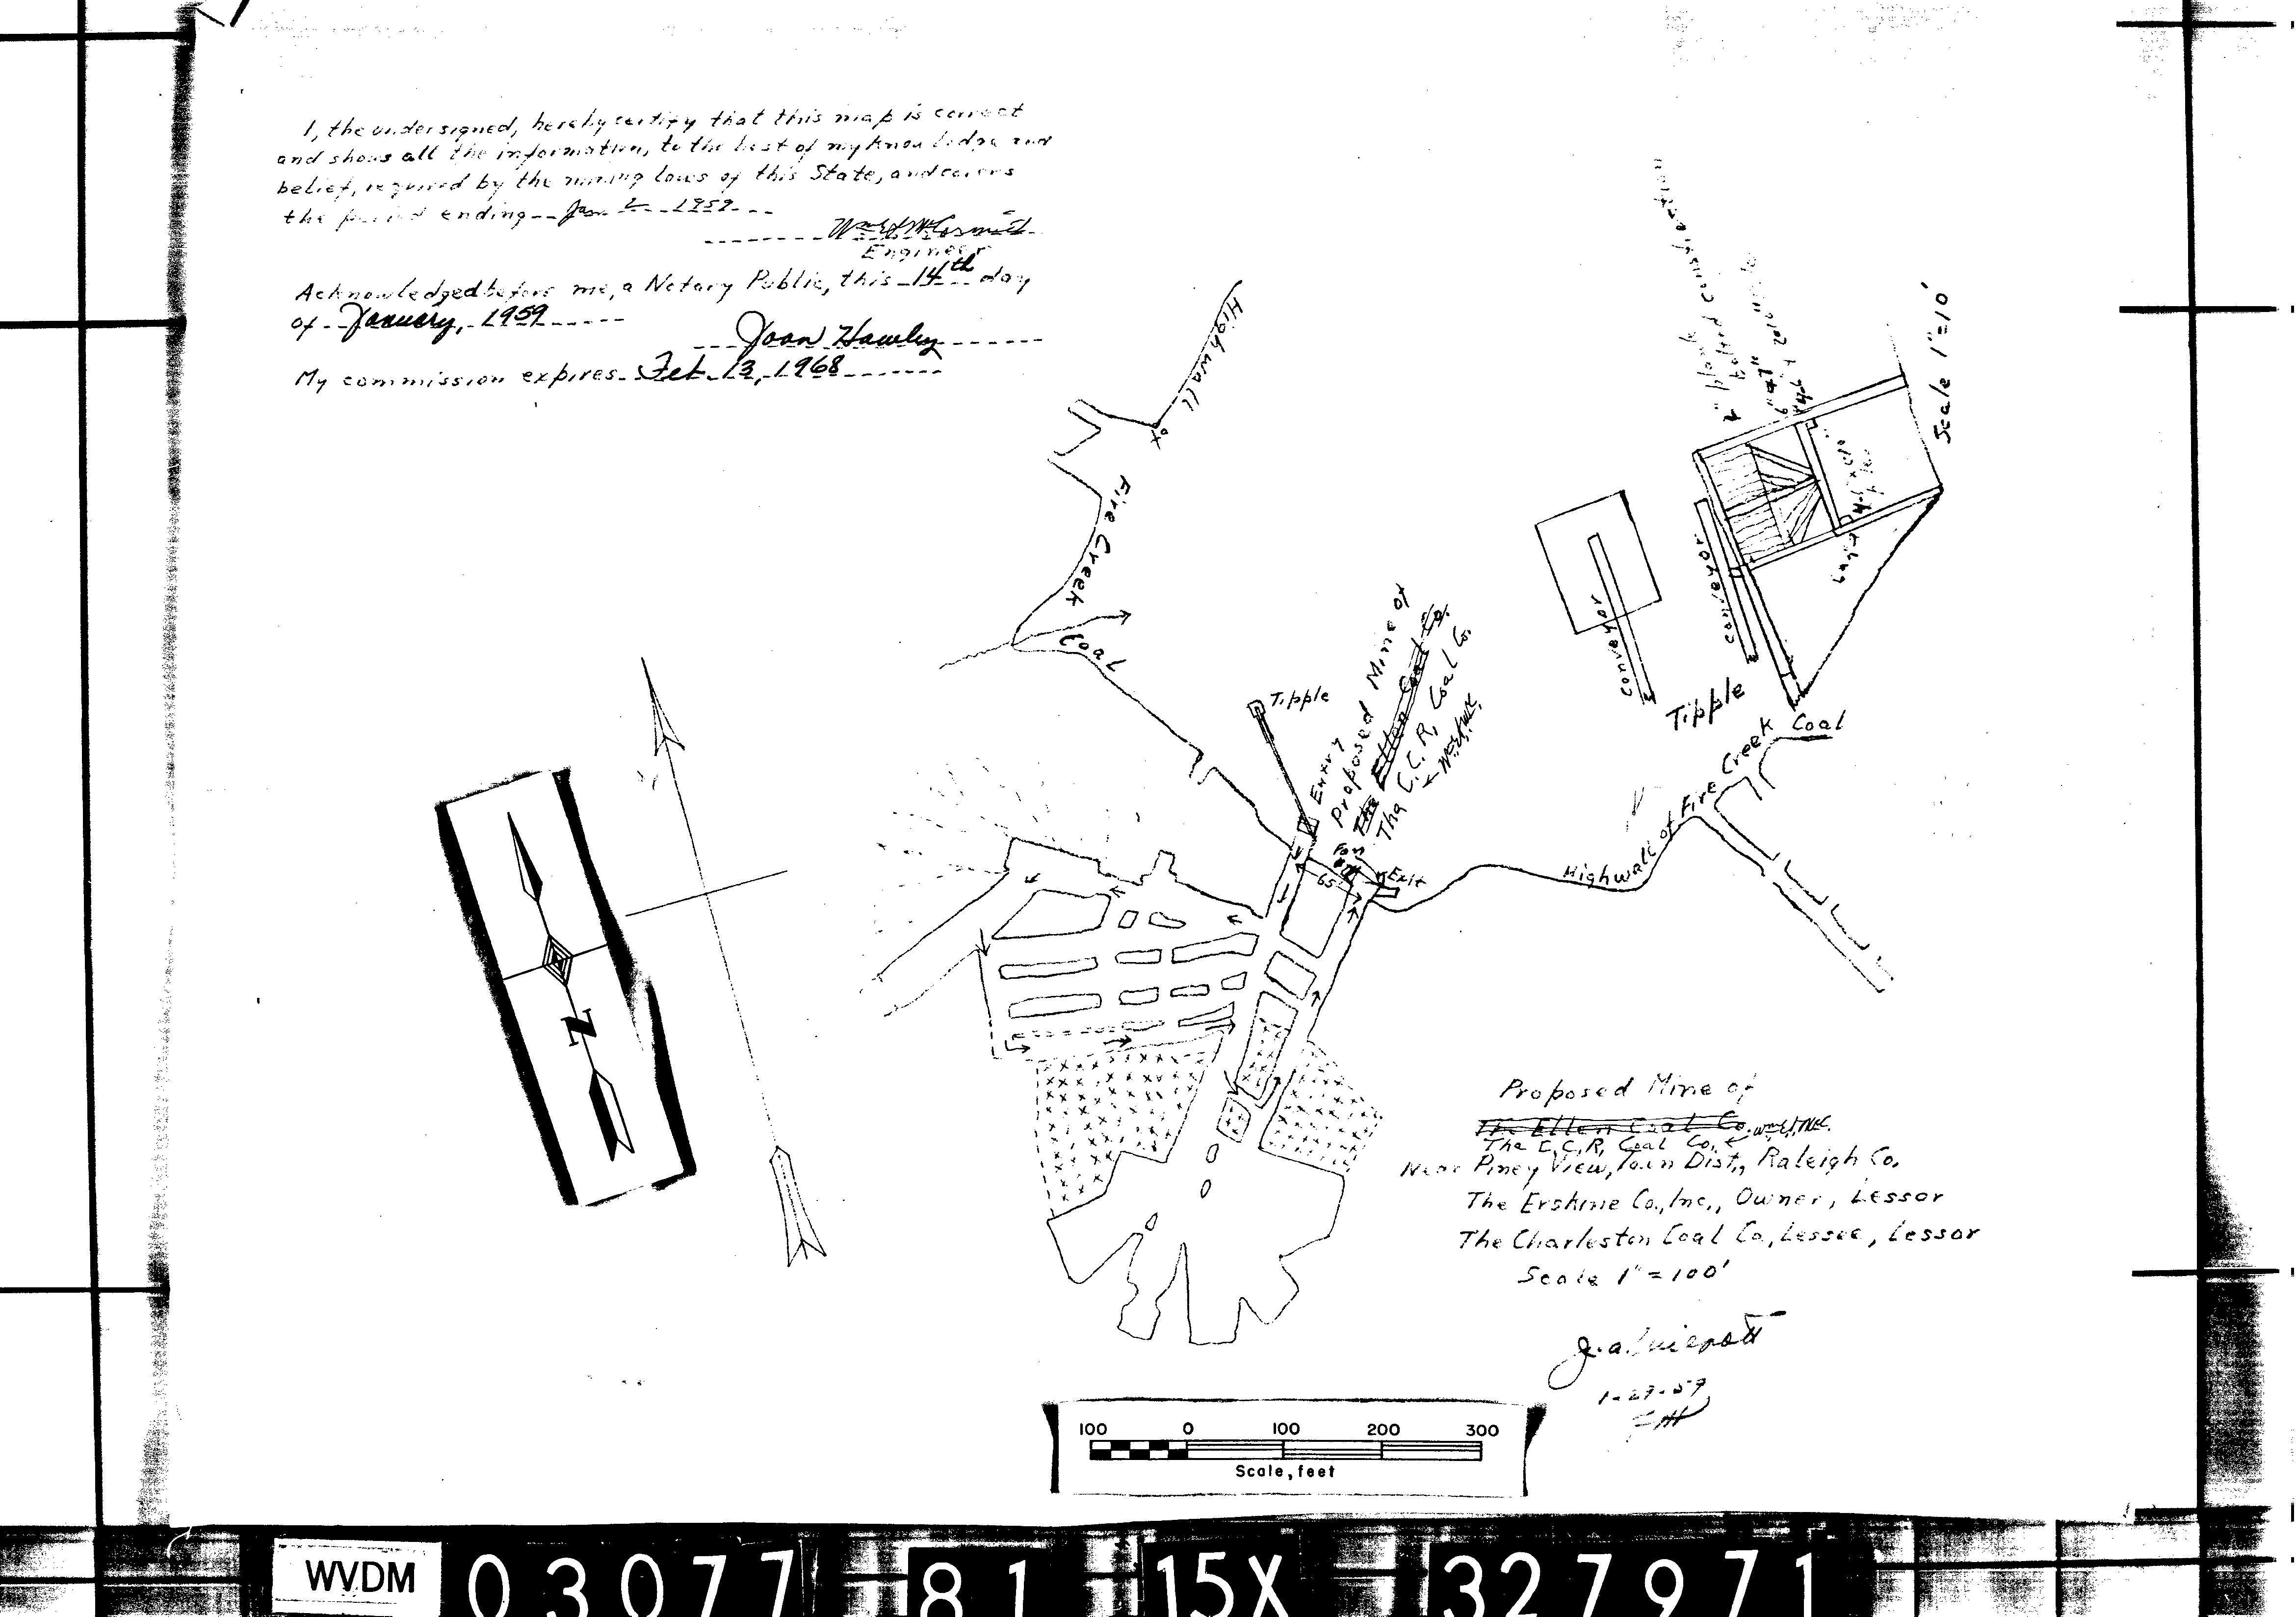 I, the undersigned, hereby certify that this map is correct
and shows all the information, to the best of my knowledge and
belief, required by the mining laws of this State, and covers
the period ending Jan 1959
Engineer
Acknowledged before me, a Notary Public, this 14th day
of January, 1959
Joan Hawley
My commission expires Feb. 13, 1968
Highwall
Fire Creek
Coal
Tipple
Entry
Proposed Mine of
The Ellen Coal Co.
The C.C.R. Coal Co.
Fan
65
Exit
Conveyor
Conveyor
Tipple
Scale 1"=10'
Highwall of Fire Creek Coal
N
Proposed Mine of
The Ellen Coal Co.
The C.C.R. Coal Co.
Near Piney View, Town Dist., Raleigh Co.
The Erskine Co., Inc., Owner, Lessor
The Charleston Coal Co., Lessee, Lessor
Scale 1"=100'
100 0 100 200 300
Scale, feet
WVDM 03077 81 15X 327971